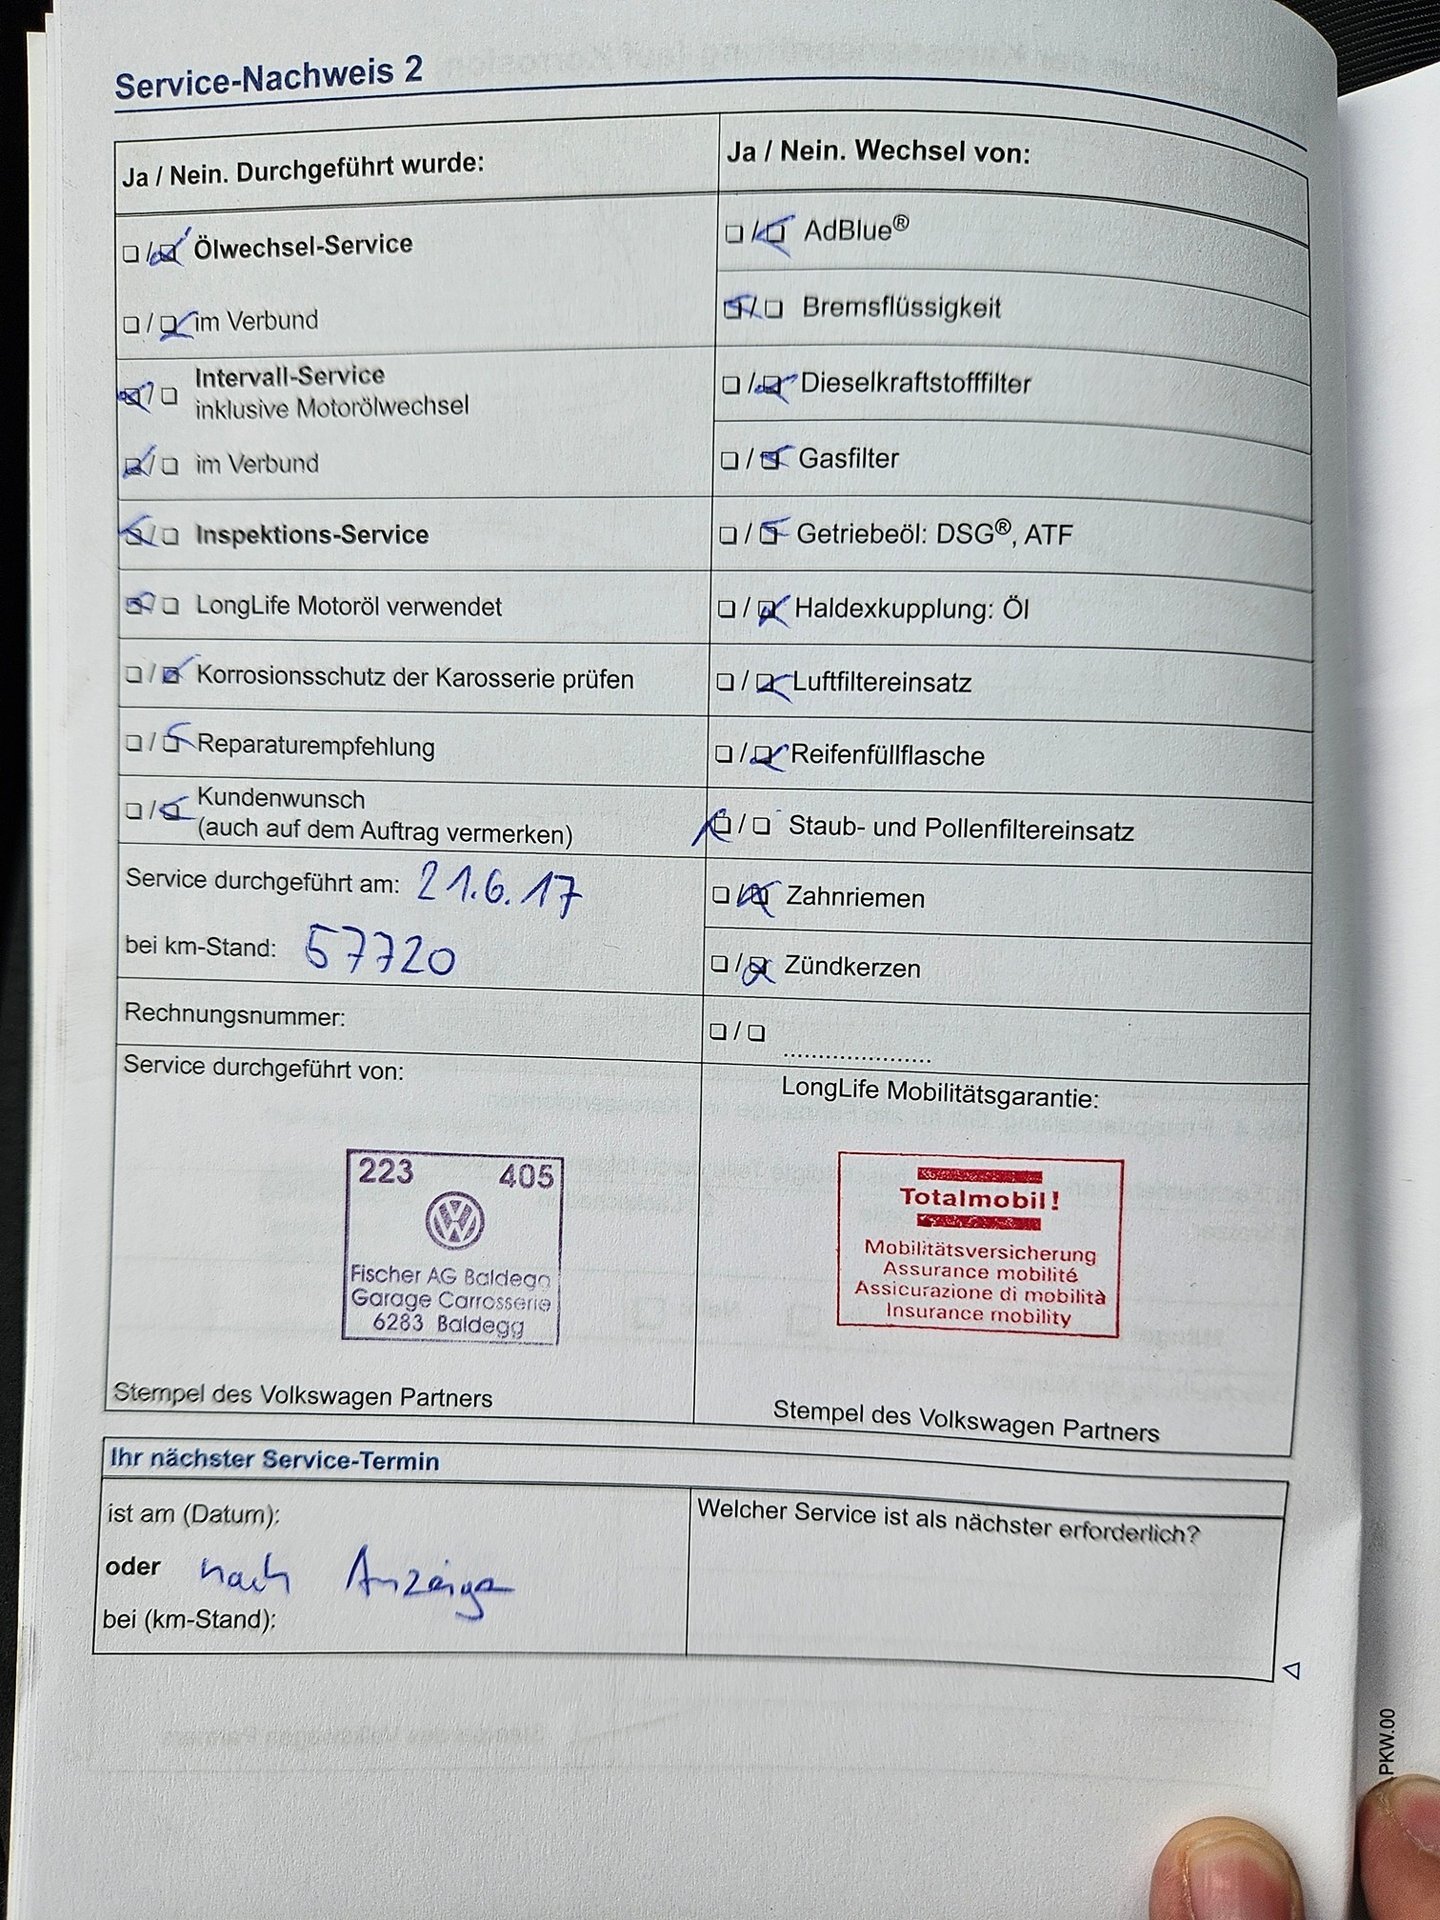 Service-Nachweis 2
Ja / Nein. Durchgeführt wurde:
❏ / ❏ Ölwechsel-Service
❏ / ❏ im Verbund
❏ / ❏ Intervall-Service
inklusive Motorölwechsel
❏ / ❏ im Verbund
❏ / ❏ Inspektions-Service
❏ / ❏ LongLife Motoröl verwendet
❏ / ❏ Korrosionsschutz der Karosserie prüfen
❏ / ❏ Reparaturempfehlung
❏ / ❏ Kundenwunsch
(auch auf dem Auftrag vermerken)
Service durchgeführt am: 21.6.17
bei km-Stand: 57720
Rechnungsnummer:
Service durchgeführt von:
223 405
Fischer AG Baldegg
Garage Carrosserie
6283 Baldegg
Stempel des Volkswagen Partners
Ja / Nein. Wechsel von:
❏ / ❏ AdBlue®
❏ / ❏ Bremsflüssigkeit
❏ / ❏ Dieselkraftstofffilter
❏ / ❏ Gasfilter
❏ / ❏ Getriebeöl: DSG®, ATF
❏ / ❏ Haldexkupplung: Öl
❏ / ❏ Luftfiltereinsatz
❏ / ❏ Reifenfüllflasche
❏ / ❏ Staub- und Pollenfiltereinsatz
❏ / ❏ Zahnriemen
❏ / ❏ Zündkerzen
❏ / ❏ .....................
LongLife Mobilitätsgarantie:
Totalmobil!
Mobilitätsversicherung
Assurance mobilité
Assicurazione di mobilità
Insurance mobility
Stempel des Volkswagen Partners
Ihr nächster Service-Termin
ist am (Datum):
oder nach Anzeige
bei (km-Stand):
Welcher Service ist als nächster erforderlich?
.PKW.00